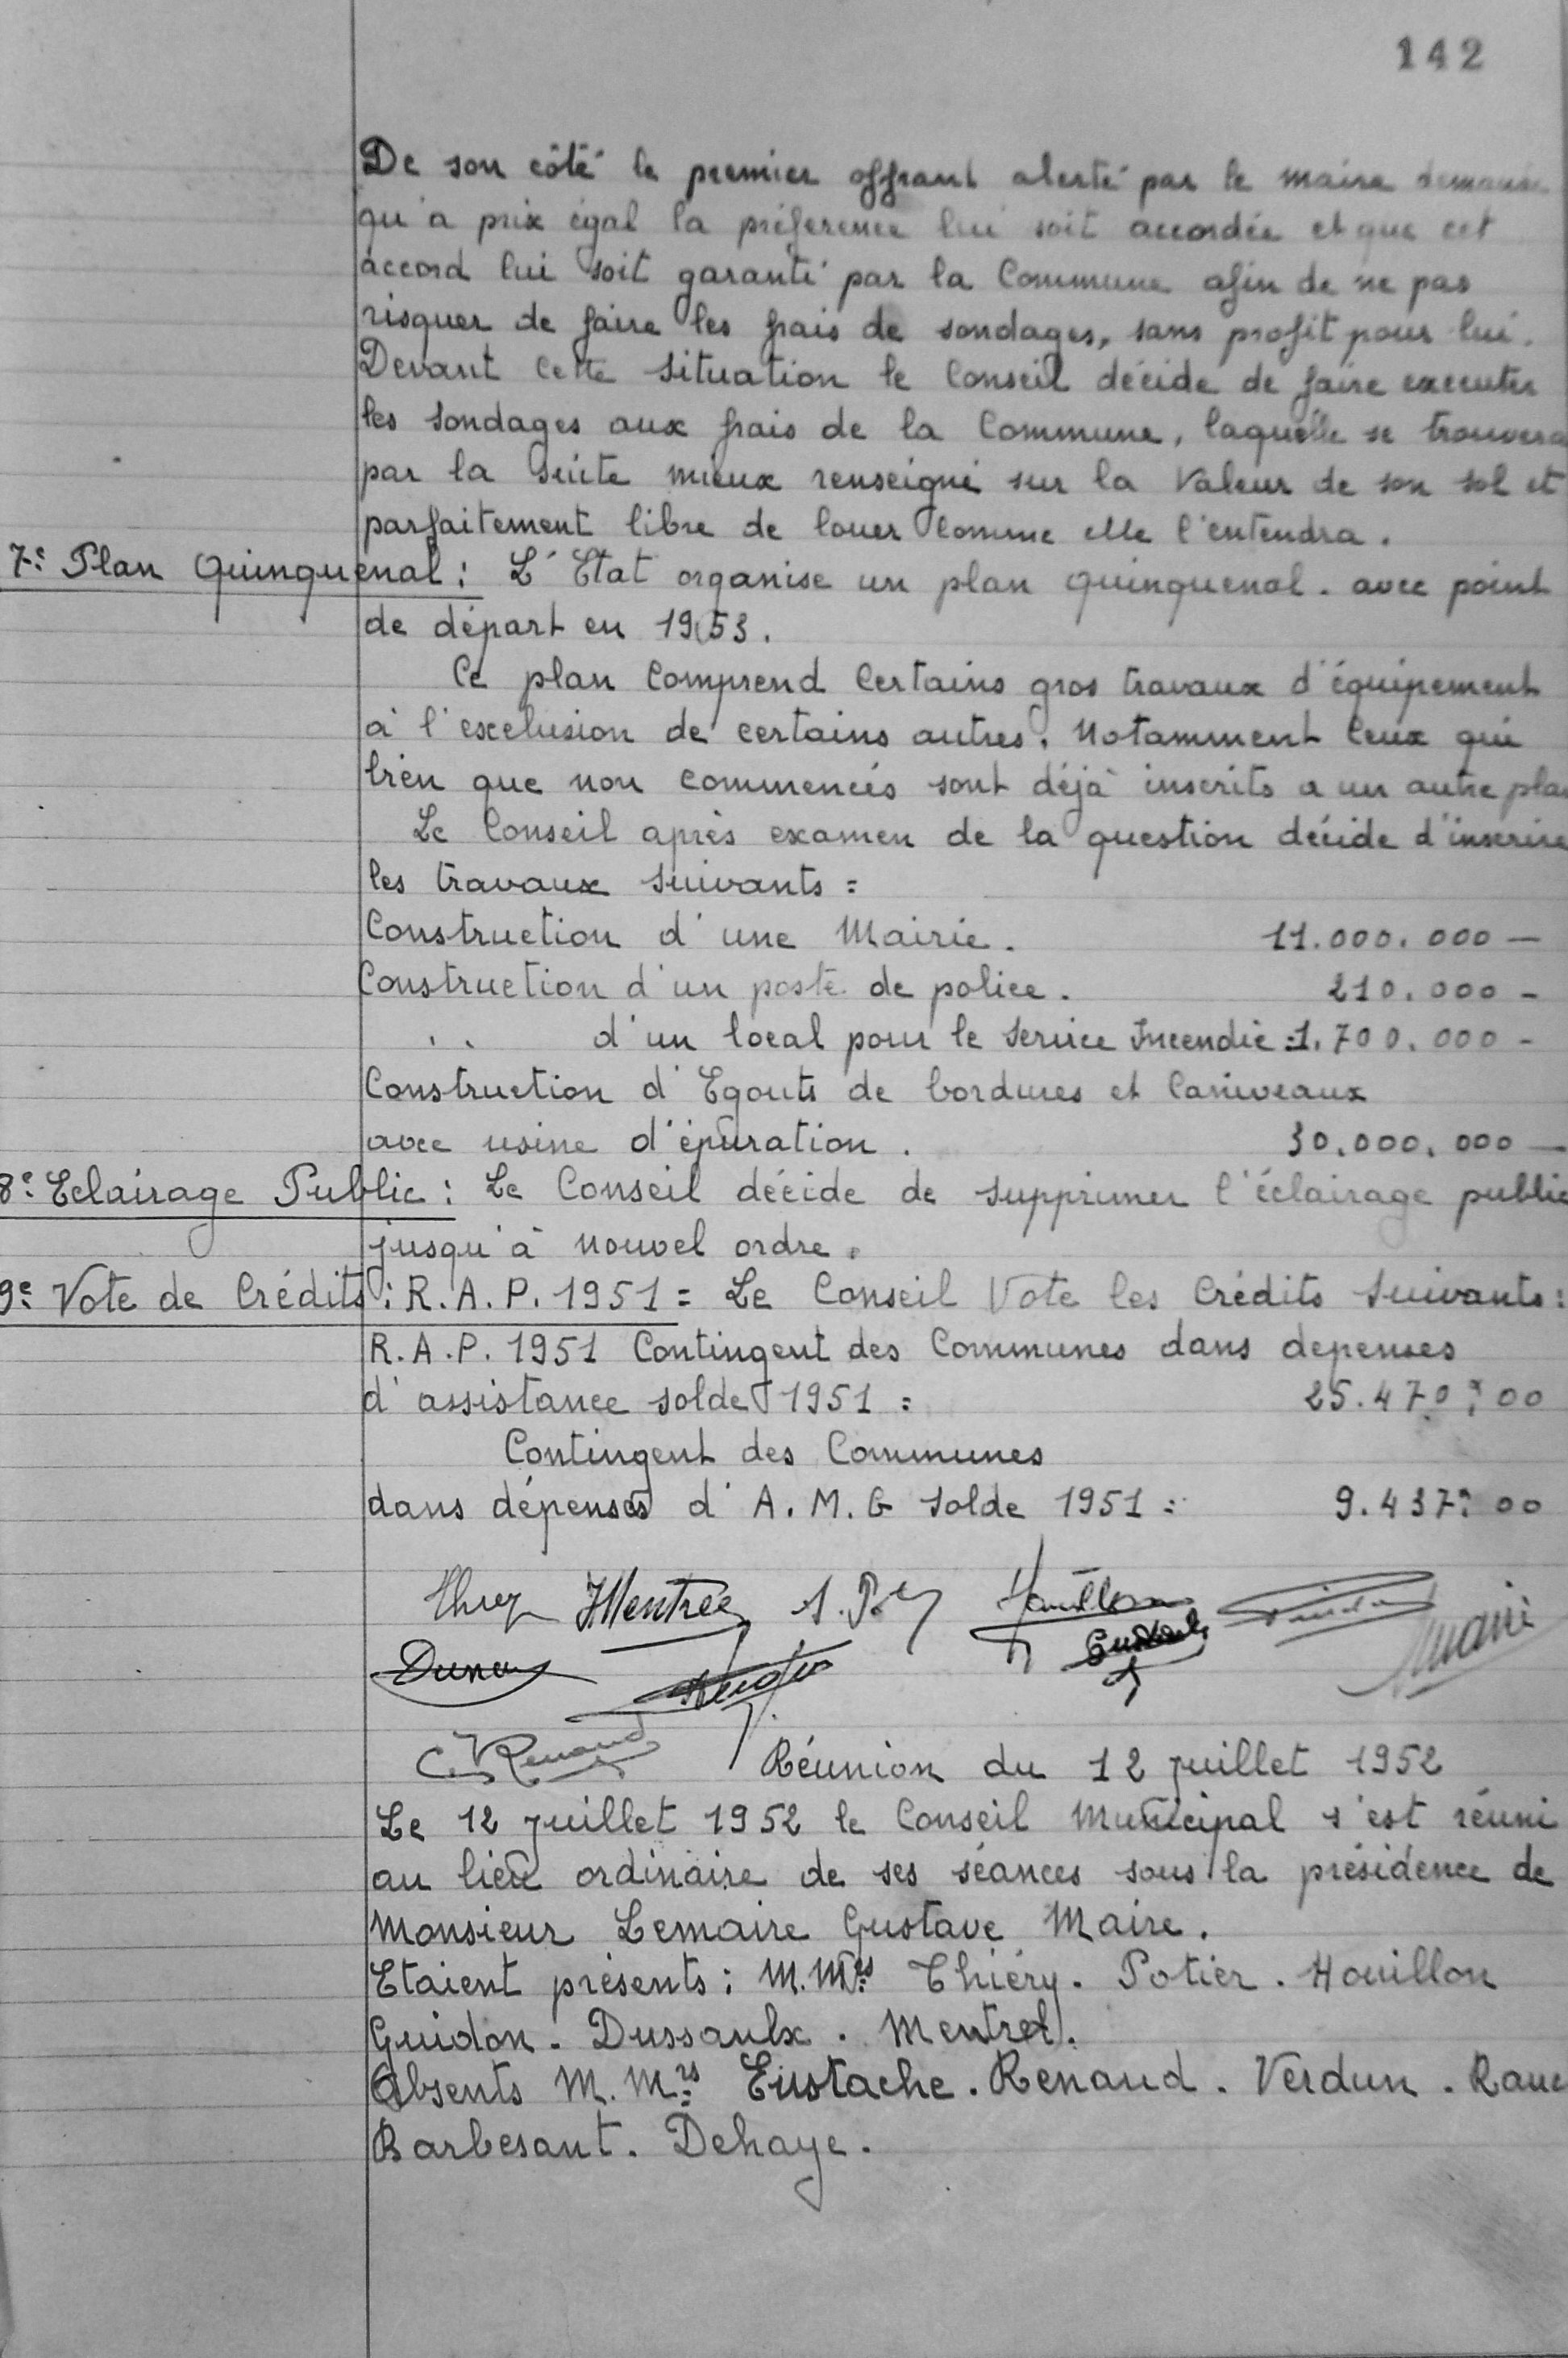 142
De son côté le premier offrant alerté par le maire demande
qu'a prix égal la préference lui soit accordée et que cet
accord lui soit garanti par la Commune afin de ne pas
risquer de faire les frais de sondages, sans profit pour lui.
Devant cette situation le Conseil décide de faire executer
les sondages aux frais de la Commune, laquelle se trouvera
par la suite mieux renseigné sur la Valeur de son sol et
parfaitement libre de louer comme elle l'entendra.
7e: Plan Quinquenal : L'Etat organise un plan quinquenal. avec point
de départ en 1953.
Ce plan Comprend Certains gros travaux d'équipement
à l'exclusion de certains autres. Notamment Ceux qui
bien que non commencés sont déjà inscrits a un autre plan
Le Conseil après examen de la question décide d'inscrire
les travaux suivants :
Construction d'une Mairie. 11.000.000 —
Construction d'un poste de police. 210.000 -
" d'un local pour le service Incendie : 1.700.000 -
Construction d'Egouts de bordures et Caniveaux
avec usine d'épuration. 30.000.000 —
8e: Eclairage Public : Le Conseil décide de supprimer l'éclairage public
jusqu'à nouvel ordre.
9e: Vote de Crédits : R.A.P. 1951 = Le Conseil Vote les Crédits Suivants :
R.A.P. 1951 Contingent des Communes dans depenses
d'assistance solde 1951 : 25.470F,00
Contingent des Communes
dans dépenses d'A.M.G solde 1951 : 9.437F,00
C. Renaud
Réunion du 12 juillet 1952
Le 12 juillet 1952 le Conseil Municipal s'est réuni
au lieu ordinaire de ses séances sous la présidence de
Monsieur Lemaire Gustave Maire.
Etaient présents : M.Mrs Thiéry. Potier. Houillon
Guidon. Dussaulx. Mentrel.
Absents M.Mrs Eustache. Renaud. Verdun.
Barbesant. Dehaye.